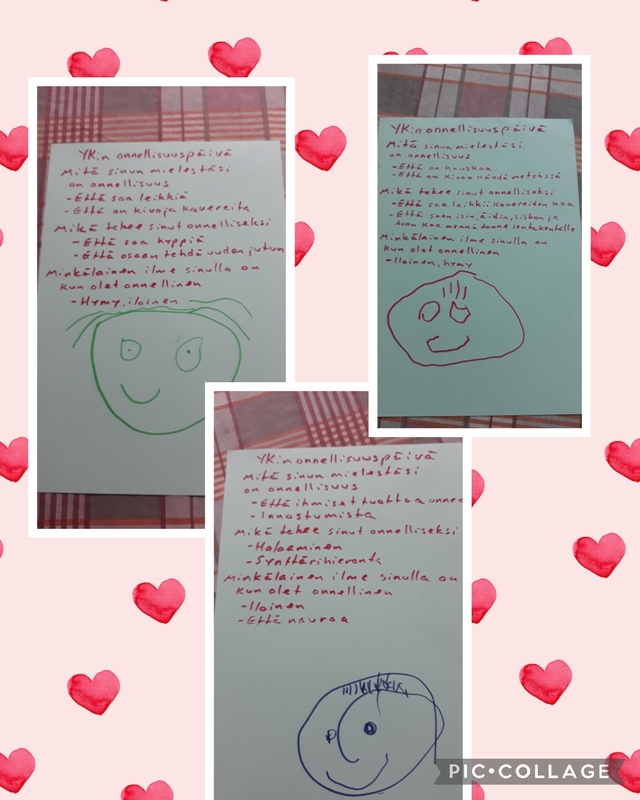 YK:n onnellisuuspäivä
Mitä sinun mielestäsi
on onnellisuus
- Että saa leikkiä
- Että on kivoja kavereita
Mikä tekee sinut onnelliseksi
- Että saa hyppiä
- Että osaan tehdä uuden jutun
Minkälainen ilme sinulla on
kun olet onnellinen
- Hymy, iloinen
YK:n onnellisuuspäivä
Mitä sinun mielestäsi
on onnellisuus
- Että on hauskaa
- Että on kivaa käydä metsässä
Mikä tekee sinut onnelliseksi
- Että saa leikkii kavereiden kaa
- Että saan isin, äidin, siskon ja
kaa mennä tonne lentokentälle
Minkälainen ilme sinulla on
kun olet onnellinen
- Iloinen, hymy
YK:n onnellisuuspäivä
Mitä sinun mielestäsi
on onnellisuus
- Että ihmiset tuottaa onnea
- Innostumista
Mikä tekee sinut onnelliseksi
- Halaaminen
- Synttärihieronta
Minkälainen ilme sinulla on
kun olet onnellinen
- Iloinen
- Että nauraa
PIC•COLLAGE